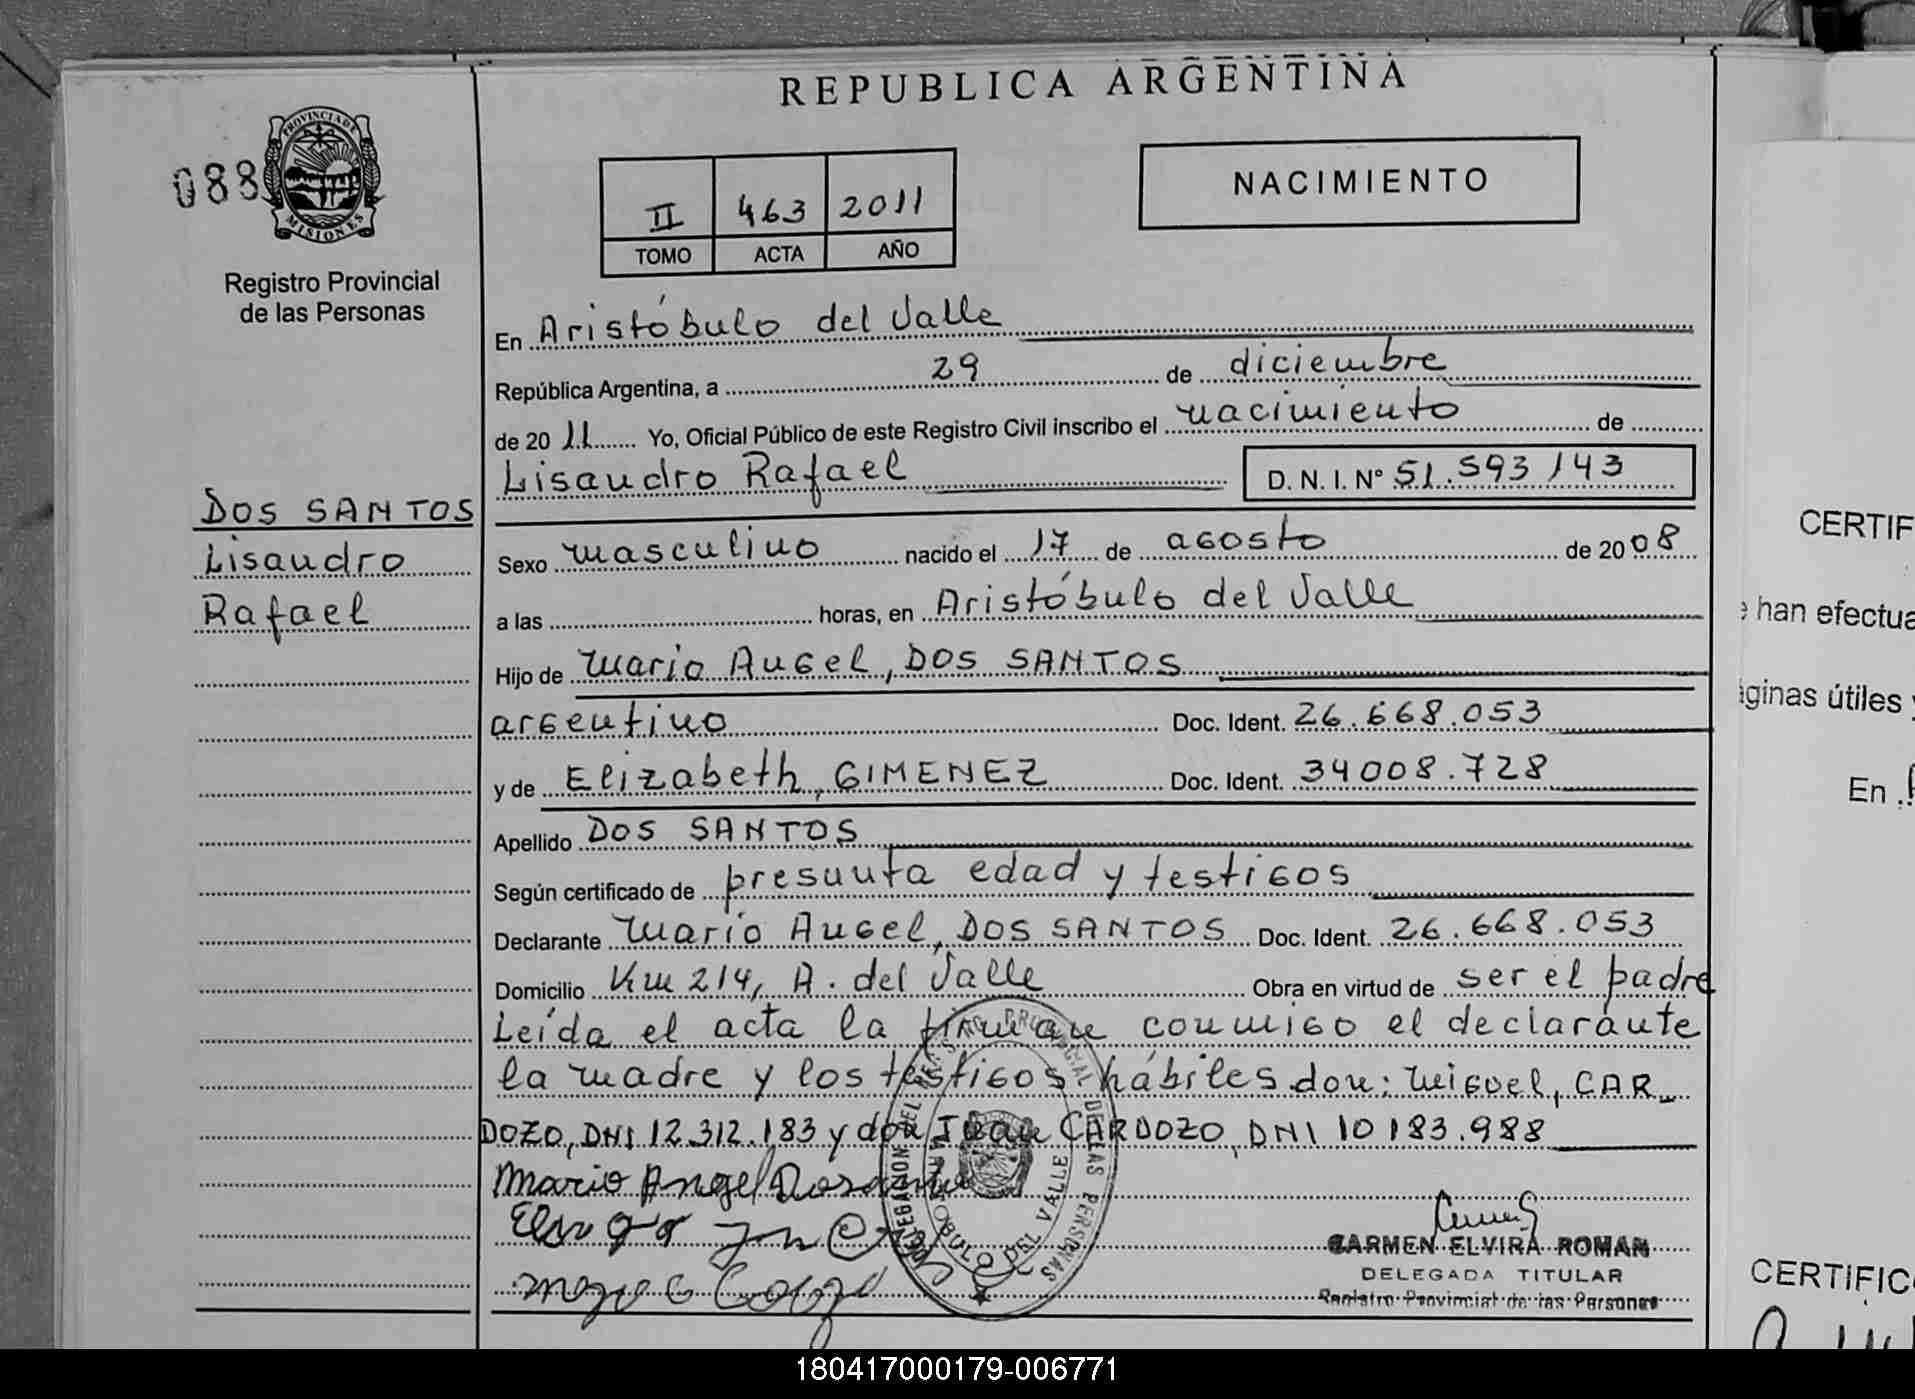 REPUBLICA ARGENTINA
088
PROVINCIA DE
MISIONES
Registro Provincial
de las Personas
II 463 2011
TOMO ACTA AÑO
NACIMIENTO
En Aristóbulo del Valle
República Argentina, a 29 de diciembre
de 2011 Yo, Oficial Público de este Registro Civil inscribo el nacimiento de
Lisandro Rafael D. N. I. Nº 51.593143
DOS SANTOS
Lisandro
Rafael
Sexo masculino nacido el 17 de agosto de 2008
a las horas, en Aristóbulo del Valle
Hijo de Mario Angel, DOS SANTOS
argentino Doc. Ident. 26.668.053
y de Elizabeth, GIMENEZ Doc. Ident. 34008.728
Apellido DOS SANTOS
Según certificado de presunta edad y testigos
Declarante Mario Angel, DOS SANTOS Doc. Ident. 26.668.053
Domicilio Km 214, A. del Valle Obra en virtud de ser el padre
Leída el acta la firman conmigo el declarante
la madre y los testigos hábiles don: Miguel, CAR_
DOZO, DNI 12.312.183 y don Juan CARDOZO, DNI 10183.988
Mario Angel Dos
DELEGACION DEL REGISTRO PROVINCIAL DE LAS PERSONAS
DEL VALLE
CARMEN ELVIRA ROMAN
DELEGADA TITULAR
Registro Provincial de las Personas
CERTIF
e han efectua
áginas útiles y
En
CERTIFIC
180417000179-006771